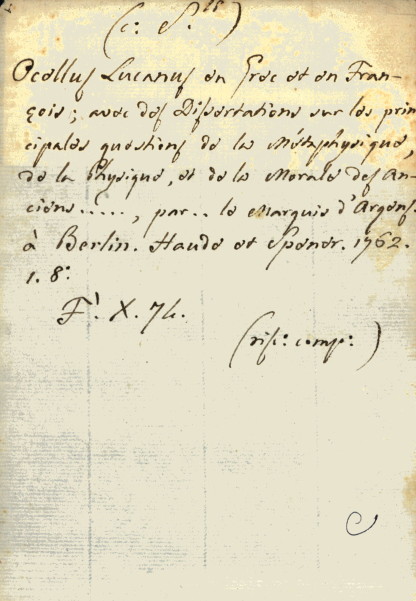 (c: S.ⁱˢ)
Ocellus Lucanus en Grec et en Fran-
çois; avec des Dissertations sur les prin
cipales questions de la Métaphysique,
de la Physique, et de la Morale des An-
ciens....., par.. le Marquis d'Argens.
à Berlin. Haude et Spener. 1762.
1. 8°.
F. X. 74.
(ris: comp:)